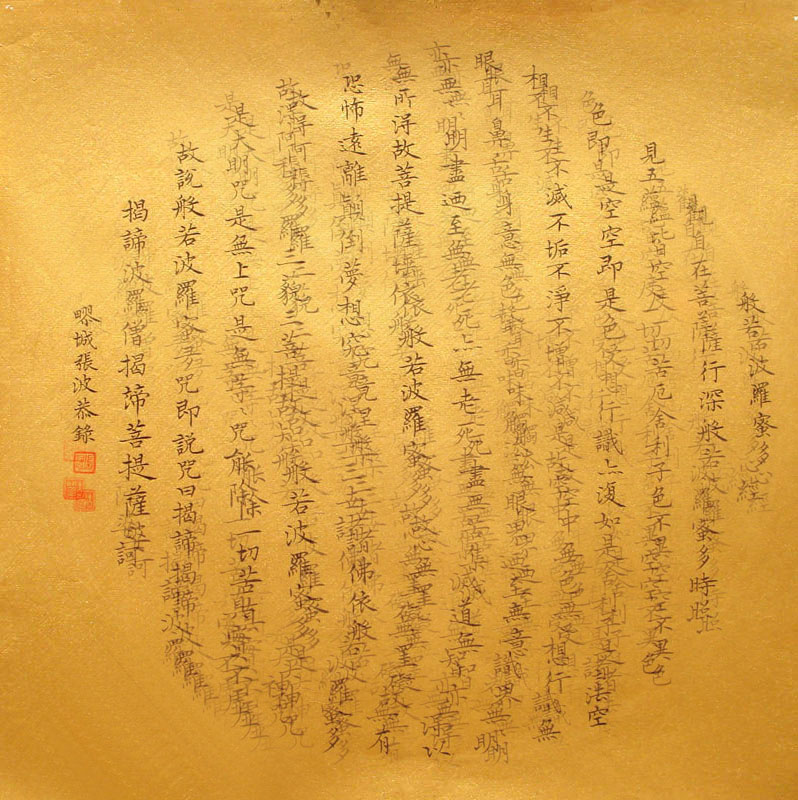 般若波羅蜜多心經
觀自在菩薩行深般若波羅蜜多時照
見五蘊皆空度一切苦厄舍利子色不異空空不異色
色即是空空即是色受想行識亦復如是舍利子是諸法空
相不生不滅不垢不淨不增不減是故空中無色無受想行識無
眼耳鼻舌身意無色聲香味觸法無眼界乃至無意識界無無明
亦無無明盡乃至無老死亦無老死盡無苦集滅道無知亦無得以
無所得故菩提薩埵依般若波羅蜜多故心無罣礙無罣礙故無有
恐怖遠離顛倒夢想究竟涅槃三世諸佛依般若波羅蜜多
故得阿耨多羅三藐三菩提故知般若波羅蜜多是大神咒
是大明咒是無上咒是無等等咒能除一切苦真實不虛
故說般若波羅蜜多咒即說咒曰揭諦揭諦波羅
揭諦波羅僧揭諦菩提薩婆訶
張波恭錄